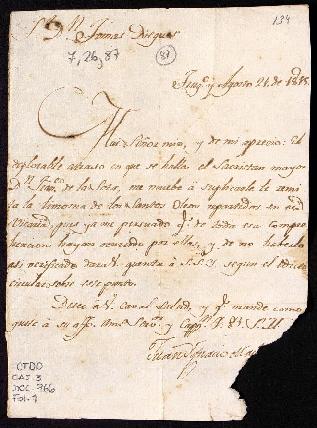 134
S.r D.n Tomas Dieguez
7, 26, 87
(81)
y Agosto 21, de 1815
Mui Señor mio, y de mi aprecio: El
deplorable atraso en que se halla el Sacristan mayor
D.n de la me mueve á suplicarle le remi
ta la limosna de los Santos Oleos repartidos en esa
Vicaria, pues ya me persuado q.e de toda esa compre
hencion hayan ocurrido por ellos, y de no haberlo
asi verificado dará V. quenta á S.S.Y. segun el
circular sobre este punto.
Deseo á V. caval salud, y q.e mande como
guste á su aff.mo Am.o y Capp.n Q. B. S. M.
Juan Ygnacio
OTDO
CAJ-3
DOC-766
Fol-1